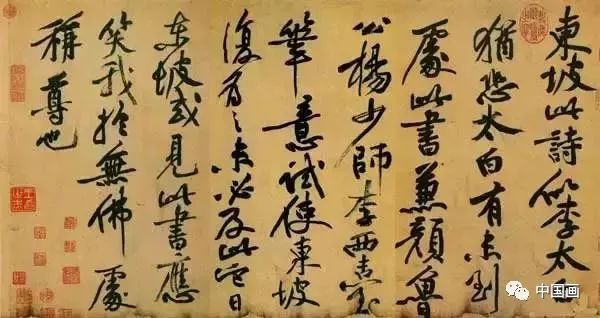 東坡此詩似李太白
猶恐太白有未到
處此書兼顏魯
公楊少師李西臺
筆意試使東坡
復為之未必及此它日
東坡或見此書應
笑我於無佛處
稱尊也
中国画